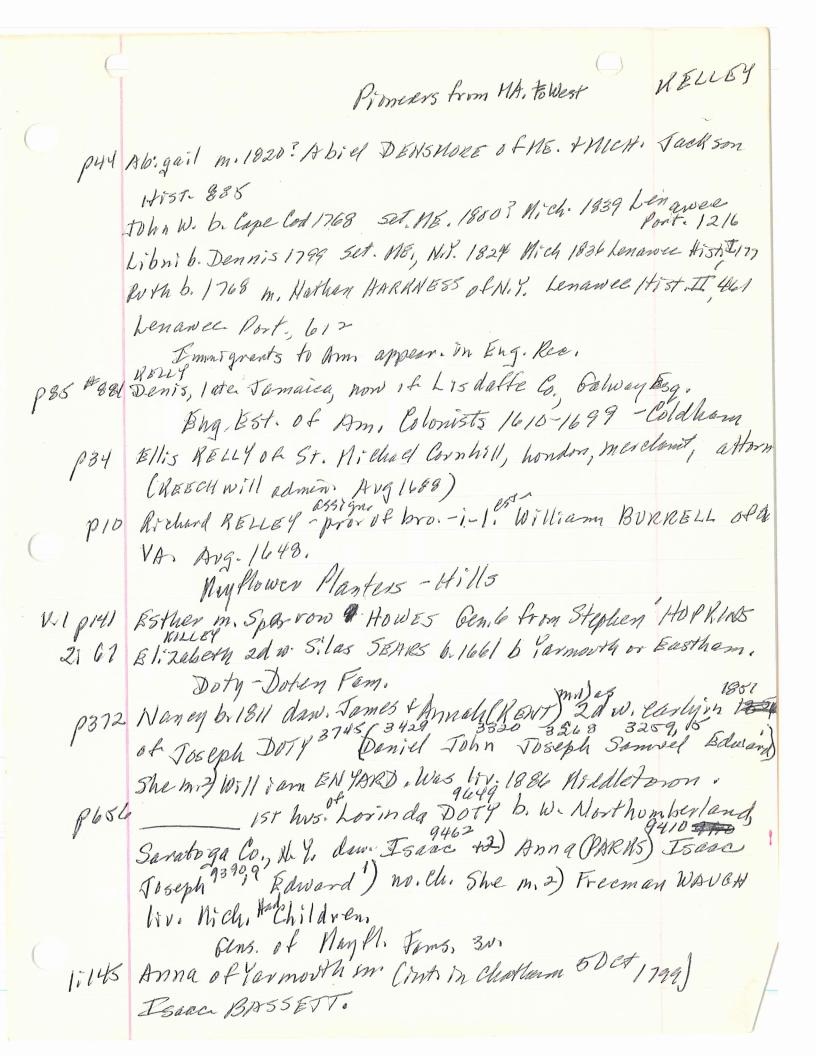 Pioneers from MA. to West KELLEY
p44 Abigail m. 1820? Abiel DENSMORE of ME. & MICH. Jackson
Hist. 885
John W. b. Cape Cod 1768 set. ME. 1800? Mich. 1839 Lenawee
Port. 1216
Libni b. Dennis 1799 set. ME., N.Y. 1824 Mich 1836 Lenawee Hist. I, 177
Ruth b. 1768 m. Nathan HARKNESS of N.Y. Lenawee Hist. II, 461
Lenawee Port., 612
Immigrants to Am. appear. in Eng. Rec.
KELLY
p85 #881 Denis, late Jamaica, now of Lisdaffe Co, Galway Esq.
Eng. Est. of Am. Colonists 1610-1699 - Coldham
p34 Ellis KELLY of St. Michael Cornhill, London, merchant, attorn
(KEECH will admin. Aug 1688)
assigne est
p10 Richard KELLEY - prov of bro.-i-l. William BURRELL of
VA. Aug. 1648.
Mayflower Planters - Hills
V.1 p141 Esther m. Sparrow HOWES Gen. 6 from Stephen' HOPKINS
KILLEY
2: 67 Elizabeth 2d w. Silas SEARS b. 1661 b Yarmouth or Eastham.
Doty-Doten Fam.
p372 Nancy b. 1811 daw. James & Annah (KENT) 2d w. early in 1851
of Joseph DOTY 3745 (Daniel 3429 John 3320 Joseph 3268 Samuel 3259, 15 Edward)
She m. 2) William ENYARD. Was liv. 1886 Middletown.
p656 ________ 1st hus. of Lorinda DOTY 9649 b. w. Northumberland,
Saratoga Co., N.Y. daw. Isaac 9462 +2) Anna (PARKS) Isaac 9410
Joseph 9390, 9 Edward 1) no. ch. She m. 2) Freeman WAUGH
liv. Mich. Had Children.
Gens. of Mayfl. Fams. 3v.
1:145 Anna of Yarmouth m. (int. in Chatham 5 Oct 1799)
Isaac BASSETT.